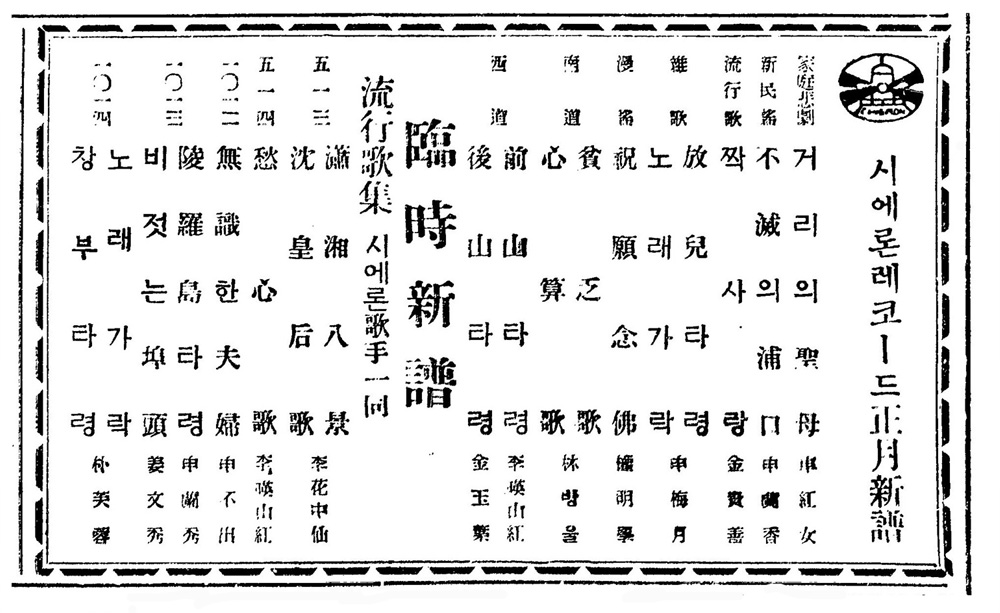 CHIERON
시에론레코ー드 正月新譜
家庭悲劇 거리의聖母 申紅女
新民謠 不滅의浦口 申蘭香
流行歌 짝사랑 金賛善
雜歌 放兒타령
노래가락 申梅月
漫謠 祝願念佛
南道 貧乏歌
心算歌 林방울
西道 前山타령 李暎山紅
後山타령 金玉葉
臨時新譜
流行歌集 시에론歌手一同
五一三 瀟湘八景
沈皇后歌 李花中仙
五一四 愁心歌 李暎山紅
一〇一二 無識한夫婦 申不出
陵羅島타령 申蘭秀
一〇一三 비젓는埠頭 姜文秀
노래가락
一〇一四 창부타령 朴芙蓉